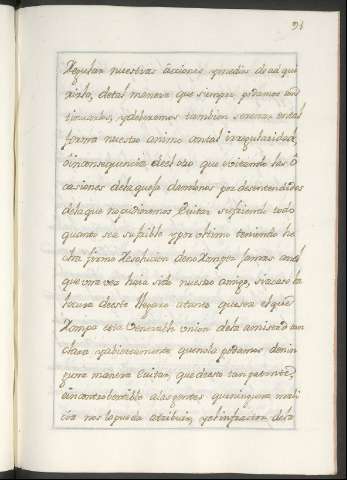 94
Regular nuestras acciones y medios de ad qui
rirlo, de tal manera que siempre podamos con
tinuarlos, y deberemos tambien serenar en tal
forma nuestro animo con tal irregularidad,
ò inconsequencia del uso que evitando las ò
casiones de la quexa damonos por desentendidos
de la que no pudieramos Evitar sufriendo todo
quanto sea sufrible y por ultimo teniendo he
cha firme Resolucion de no Romper Jamas con el
que una vez haia sido nuestro amigo, si acaso la
locura de este llegara a tanto que sea el que
Rompa esta Venerable union de la amistad tan
clara y abiertamente que no la podamos de nin
guna manera Evitar, que de esto tan patente,
è incontrobertible a las gentes que ninguna mali
cia nos la pueda atribuir, y el infractor de la